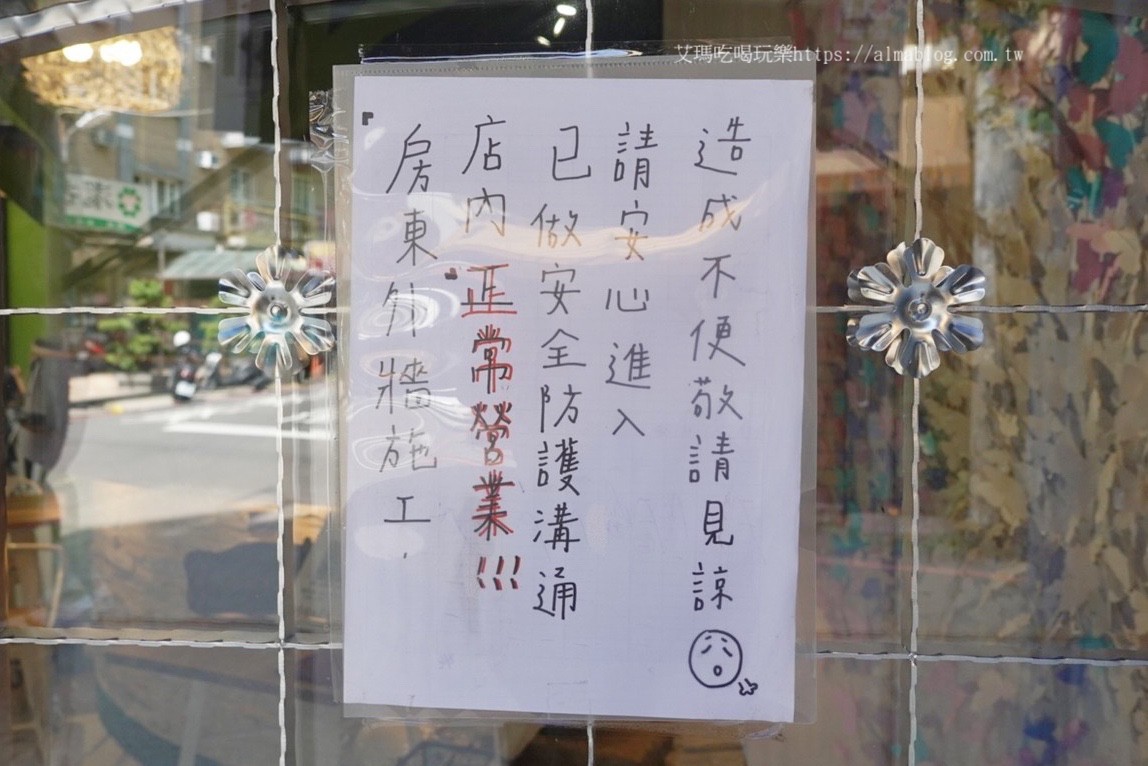 艾瑪吃喝玩樂https://almablog.com.tw
房東外牆施工,
店內正常營業!!!
已做安全防護溝通
請安心進入
造成不便敬請見諒